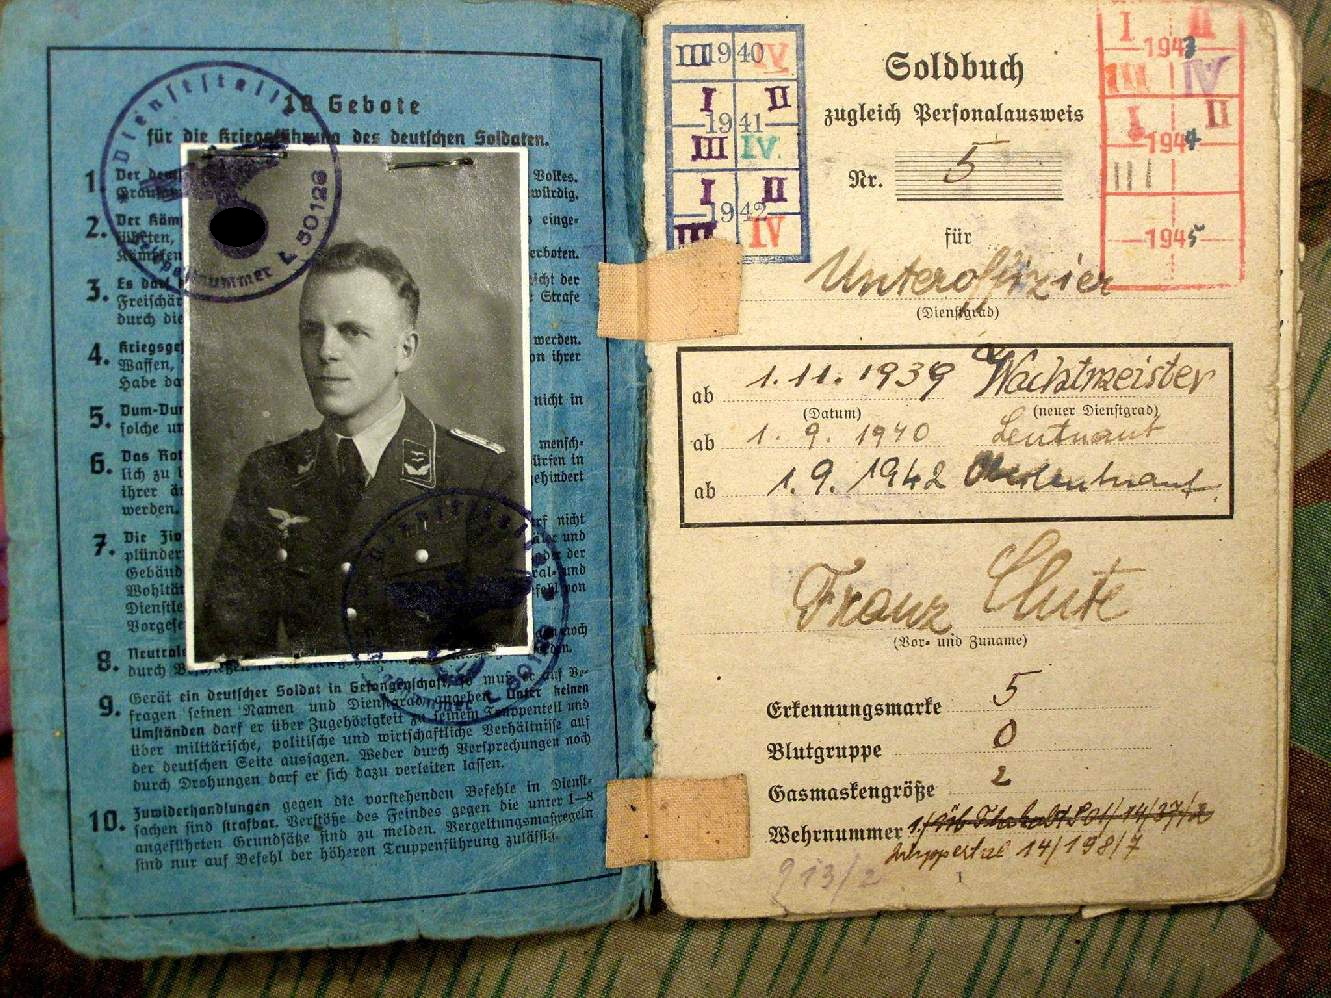 10 Gebote
für die Kriegsführung des deutschen Soldaten.
Dienststelle
Feldpostnummer L 50129
1. Der
Volkes.
würdig.
2. Der
einge-
verboten.
3. Es darf
nicht der
Freischär
Strafe
durch die
4.
werden.
Waffen,
von ihrer
Habe
5. Dum-Dum
nicht in
solche
6. Das
mensch-
lich zu
dürfen in
ihrer
gehindert
werden.
7. Die
nicht
plünder
und
Gebäud
der
Wohltä
und
Dienstle
von
Vorgese
8. Neutral
noch
durch
9. Gerät ein deutscher Soldat in Gefangenschaft, so muß er auf Be-
fragen seinen Namen und Dienstgrad angeben. Unter keinen
Umständen darf er über Zugehörigkeit zu seinem Truppenteil und
über militärische, politische und wirtschaftliche Verhältnisse auf
der deutschen Seite aussagen. Weder durch Versprechungen noch
durch Drohungen darf er sich dazu verleiten lassen.
10. Zuwiderhandlungen gegen die vorstehenden Befehle in Dienst-
sachen sind strafbar. Verstöße des Feindes gegen die unter 1–8
angeführten Grundsätze sind zu melden. Vergeltungsmaßregeln
sind nur auf Befehl der höheren Truppenführung zulässig.
III 1940 IV
I II
1941
III IV
I II
1942
III IV
I II
1943
III IV
I II
1944
III
1945
Soldbuch
zugleich Personalausweis
Nr. 5
für
Unteroffizier
(Dienstgrad)
ab 1.11.1939 Wachtmeister
(Datum) (neuer Dienstgrad)
ab 1.9.1940 Leutnant
ab 1.9.1942 Oberleutnant
Franz Chute
(Vor- und Zuname)
Erkennungsmarke 5
Blutgruppe 0
Gasmaskengröße 2
Wehrnummer
Wuppertal 14/198/7
913/2
1